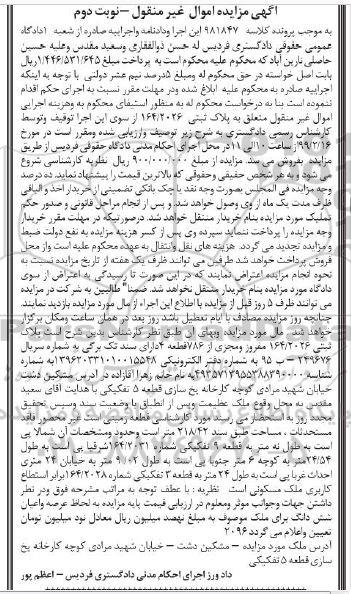 آگهی مزایده اموال غیر منقول –نوبت دوم
به موجب پرونده کلاسه ۹۸۱۸۴۷ این اجرا ودادنامه واجراییه صادره از شعبه ۱دادگاه
عمومی حقوقی دادگستری فردیس له حسن ذوالفقاری وسعید مقدس وعلیه حسین
حاصلی نارین آباد که محکوم علیه محکوم است به پرداخت مبلغ ۱/۴۴۶/۵۳۱/۶۴۵ریال
بابت اصل خواسته در حق محکوم له ومبلغ ۵درصد نیم عشر دولتی با توجه به اینکه
اجراییه صادره به محکوم علیه ابلاغ شده ودر مهلت مقرر نسبت به اجرای حکم اقدام
ننموده است بنا به درخواست محکوم له به منظور استیفای محکوم به وهزینه اجرایی
اموال غیر منقول متعلق به پلاک ثبتی ۱۶۴/۲۰۲۶ از سوی این اجرا توقیف وتوسط
کارشناس رسمی دادگستری به شرح زیر توصیف وارزیابی شده ومقرر است در مورخ
۹۹/۲/۱۶ از ساعت ۱۰الی ۱۱در محل اجرای احکام مدنی دادگاه حقوقی فردیس از طریق
مزایده بفروش برسد. مزایده از مبلغ ۹۰۰/۰۰۰/۰۰۰ ریال نظریه کارشناسی شروع
می شود و به هر شخص حقیقی وحقوقی که بالاترین قیمت را پیشنهاد نماید. ده درصد
وجه مزایده فی المجلس بصورت وجه نقد یا چک بانکی تضمینی از خریدار اخذ و الباقی
ظرف مدت یک ماه از وی وصول خواهد شد. و پس از انجام مراحل قانونی و صدور حکم
تملیک مورد مزایده بنام خریدار منتقل خواهد شد. درصورتیکه در مهلت مقرر خریدار
وجه مزایده را پرداخت ننماید سپرده وی پس از کسر هزینه مزایده به نفع دولت ضبط
و مزایده تجدید می گردد. هزینه های نقل وانتقال به عهده محکوم علیه است واز محل
فروش پرداخت خواهد شد طرفین می توانند ظرف یک هفته از تاریخ مزایده نسبت به
نحوه انجام مزایده اعتراض نمایند که در این صورت تا رسیدگی به اعتراض از سوی
دادگاه مورد مزایده بنام خریدار منتقل نخواهد شد. ضمنا" طالبین به شرکت در مزایده
می توانند ظرف ۵ روز قبل از مزایده با اطلاع این اجراء از مال مورد مزایده بازدید نمایند.
چنانچه روز مزایده مصادف با ایام تعطیل باشد روز بعد در همان ساعت ومکان برگزار
خواهد شد. مال مورد مزایده وبهای آن طبق نظر کارشناس بدین شرح است پلاک
ثبتی ۱۶۴/۲۰۲۶ مفروز ومجزی از ۷۸۶قطعه ۴دارای سند تک برگی به شماره سریال
۲۴۹۶۷۶ – ب ۹۵ به شماره دفتر الکترونیکی ۱۳۹۶۲۰۳۳۱۰۱۰۰۱۵۵۴۸به شماره
به خانم زهرا آقازاده در آدرس مشکین دشت
خیابان شهید مرادی کوچه کارخانه یخ سازی قطعه ۵ تفکیکی با هدایت آقای سعید
مقدس به محل وقوع ملک عظیمت وپس از انطباق با وضعیت سند وسپس تحقیق
به استحضار می رسد مورد کارشناسی قطعه زمینی است غیر محصور فاقد
مستحدثات ، مساحت طبق سند ۲۱۸/۴۲ متر است وحدود ومشخصات آن شمالا پی
است به طول نه متر به قطعه ۹ تفکیکی شماره ۱۶۴/۲۰۳۱ شرقا پی است به طول
۲۴/۵۴متر به کوچه ۶ متر جنوبا پی است به طول ۹/۰۲ متر به خیابان ۲۴ متری
احداث غربا پی است به طول ۲۴ متر به قطعه ۳ تفکیکی شماره ۱۶۴/۲۰۲۸برابر استعلام
کاربری ملک مسکونی است نظریه : با عطف توجه به مراتب مشرحه فوق ودر نظر
داشتن جهات وجوانب موثر ومعلوم در ارزیابی قیمت پایه مزایده به لحاظ عرصه واعیان
شش دانگ برای ملک موصوف به مبلغ نهصد میلیون ریال معادل نود میلیون تومان
تعیین واعلام می گردد ۲۰۹۶
آدرس ملک مورد مزایده – مشکین دشت – خیابان شهید مرادی کوچه کارخانه یخ
سازی قطعه ۵تفکیکی
داد ورز اجرای احکام مدنی دادگستری فردیس – اعظم پور